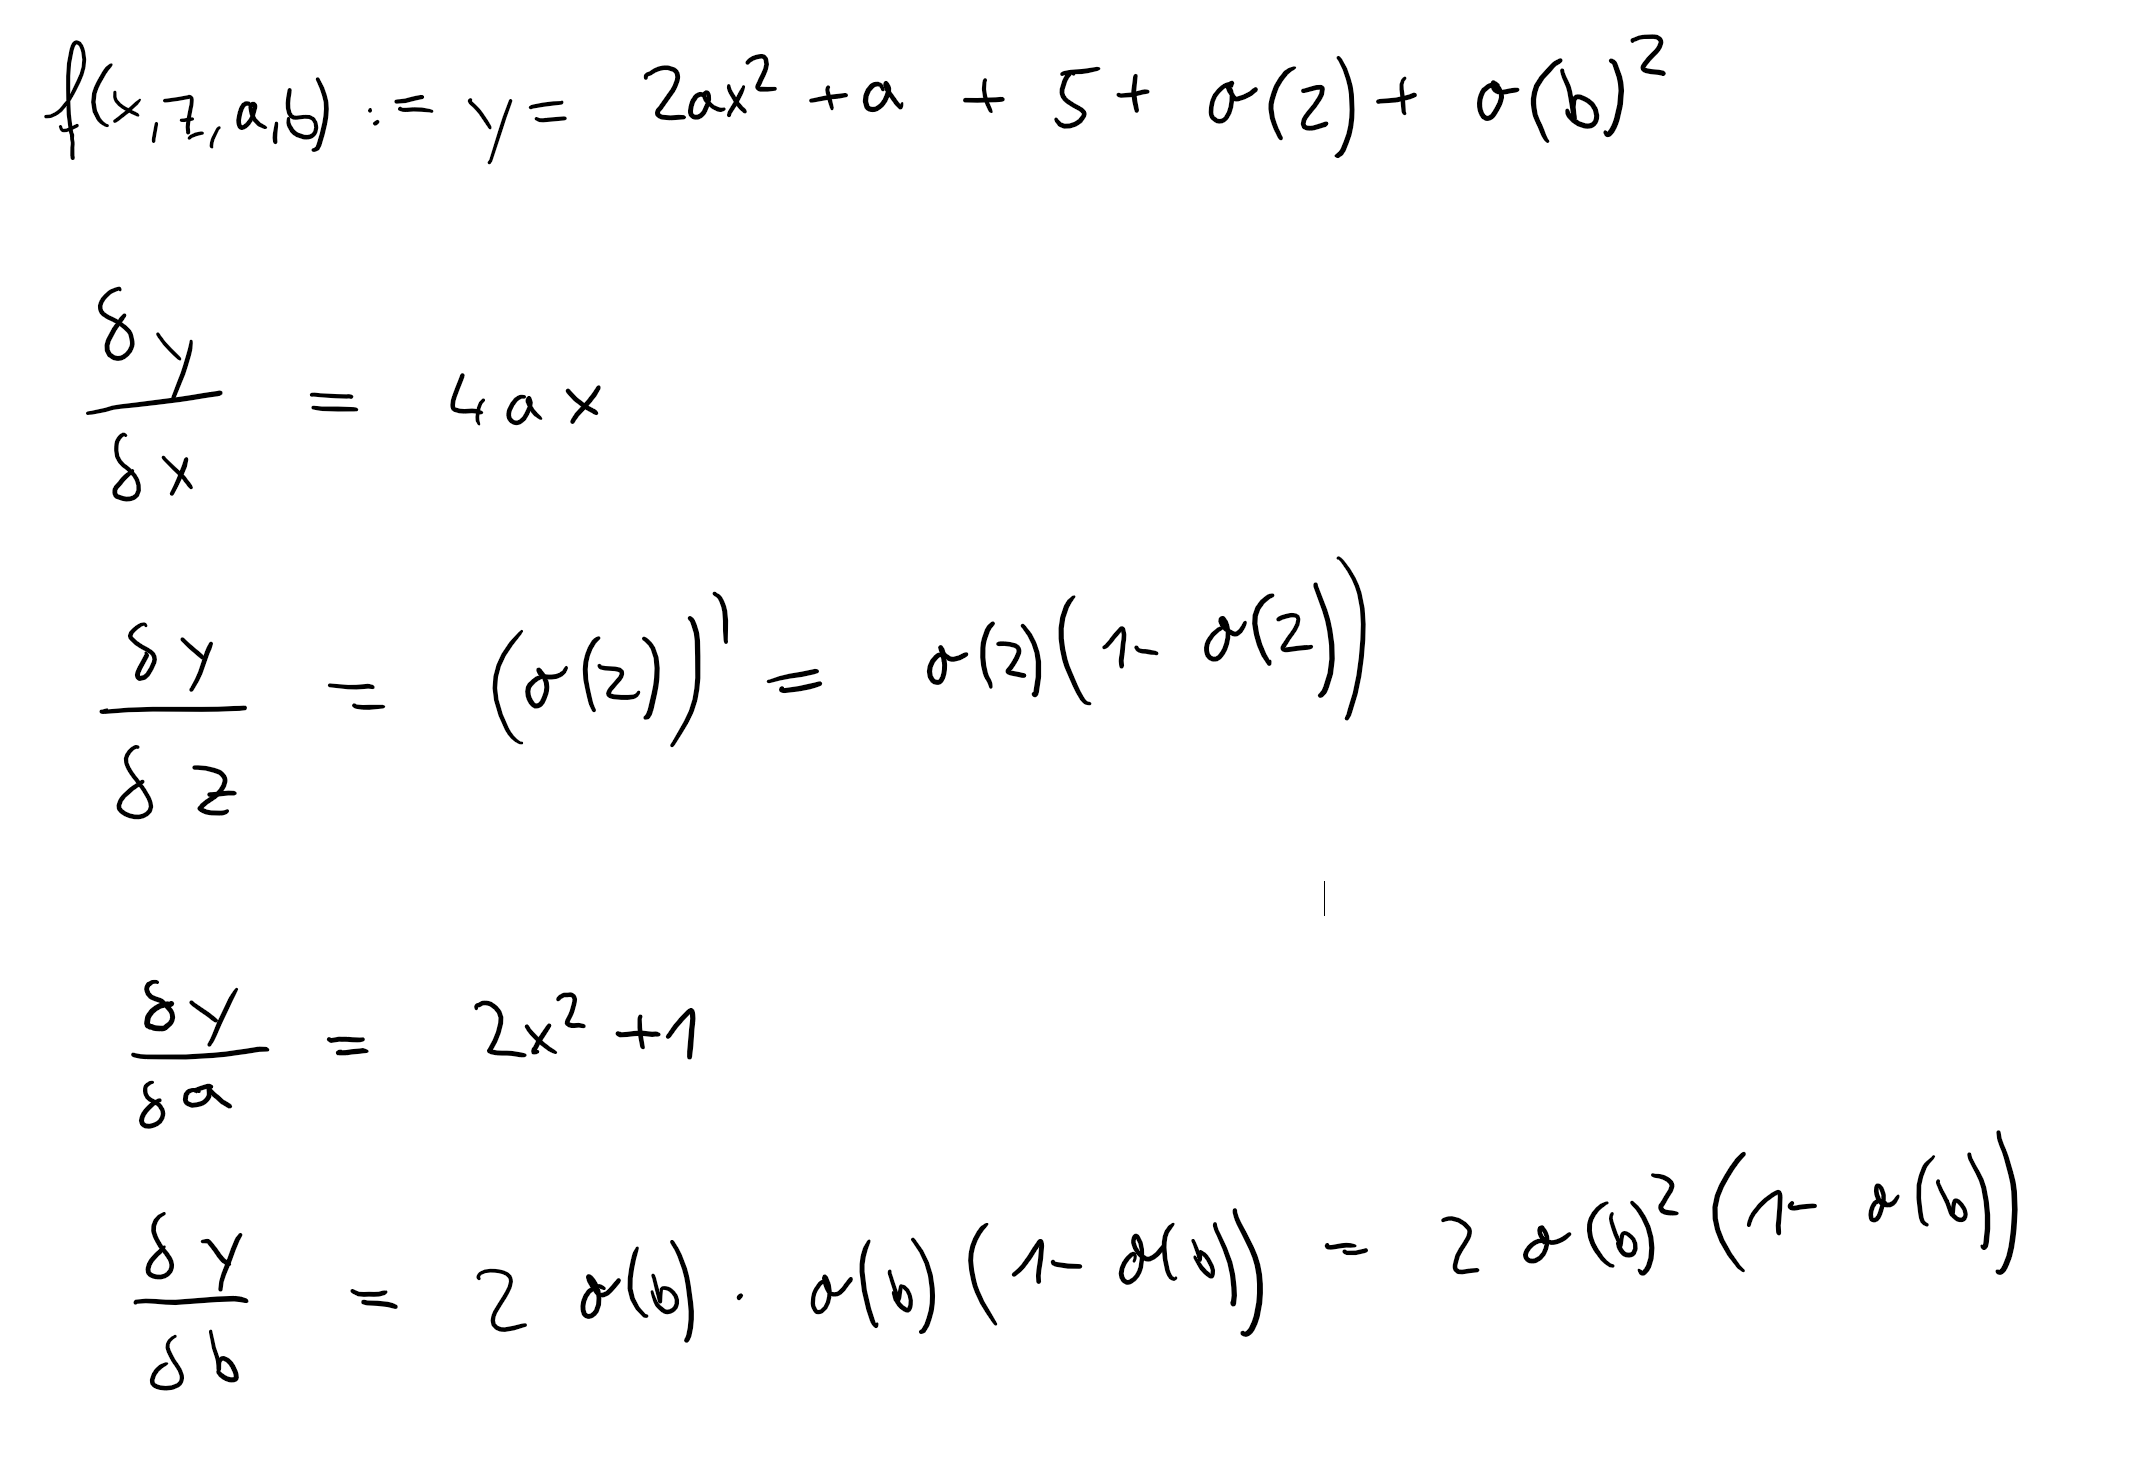 f(x,z,a,b) := y = 2ax² + a + 5 + σ(z) + σ(b)²
δy/δx = 4ax
δy/δz = (σ(z))' = σ(z)(1 - σ(z))
δy/δa = 2x² + 1
δy/δb = 2 σ(b) · σ(b)(1 - σ(b)) = 2 σ(b)² (1 - σ(b))